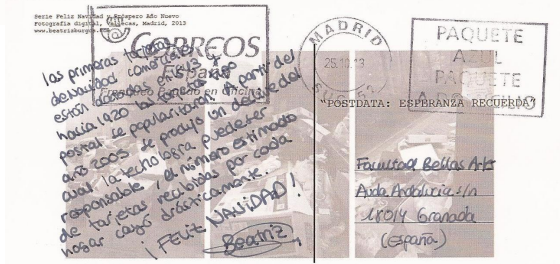 Serie Feliz Navidad y Próspero Año Nuevo
Fotografía digital, Vallecas, Madrid, 2013
www.beatrizburgos.com
CORREOS
España
Franqueo Pagado en Oficina
MADRID
25.10.13
SUC. 52
PAQUETE
AZUL
PAQUETE
A DOM
"POSTDATA: ESPERANZA RECUERDA"
Las primeras tarjetas
de Navidad comerciales
están datadas en 1843 y
hacia 1920 la
postal se popularizó. A partir del
año 2005 se produjo un declive del
cual la tecnología puede ser
responsable, el número estimado
de tarjetas recibidas por cada
hogar cayó drásticamente.
¡FELIZ NAVIDAD!
Beatriz
Facultad Bellas Arts
Avda Andalucía s/n
18014 Granada
(España)